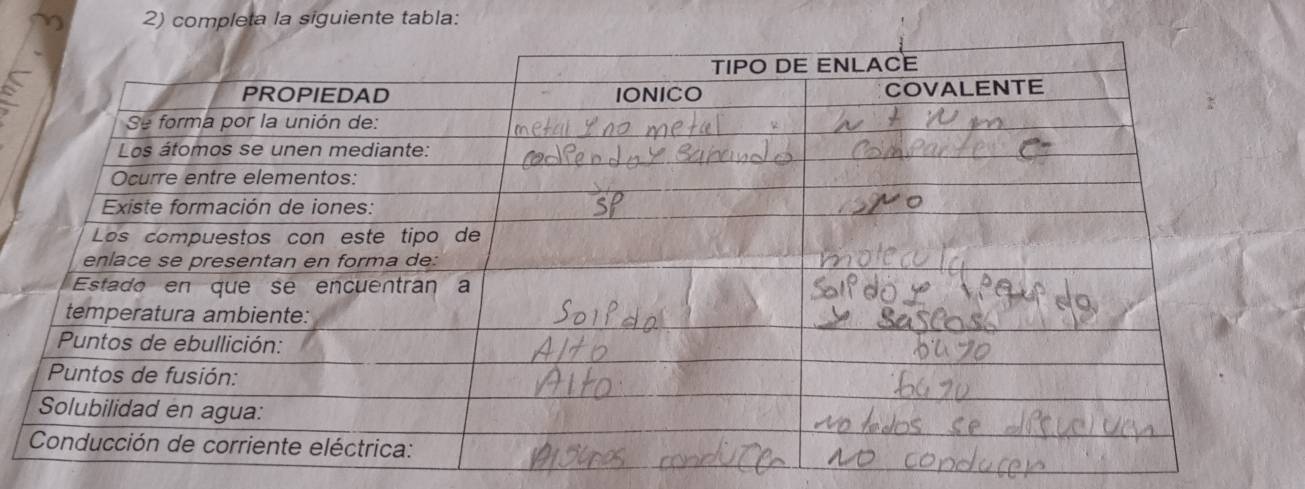 2) completa la siguiente tabla:
TIPO DE ENLACE
PROPIEDAD IONICO COVALENTE
Se forma por la unión de: metal y no metal N + N m
Los átomos se unen mediante: Comparte e-
Ocurre entre elementos:
Existe formación de iones: SP NO
Los compuestos con este tipo de
enlace se presentan en forma de: molecula
Estado en que se encuentran a
temperatura ambiente: SolPdo SolPdo y
y
Puntos de ebullición: Alto bayo
Puntos de fusión: Alto bayo
Solubilidad en agua: No todos se
Conducción de corriente eléctrica: conducen NO conducen